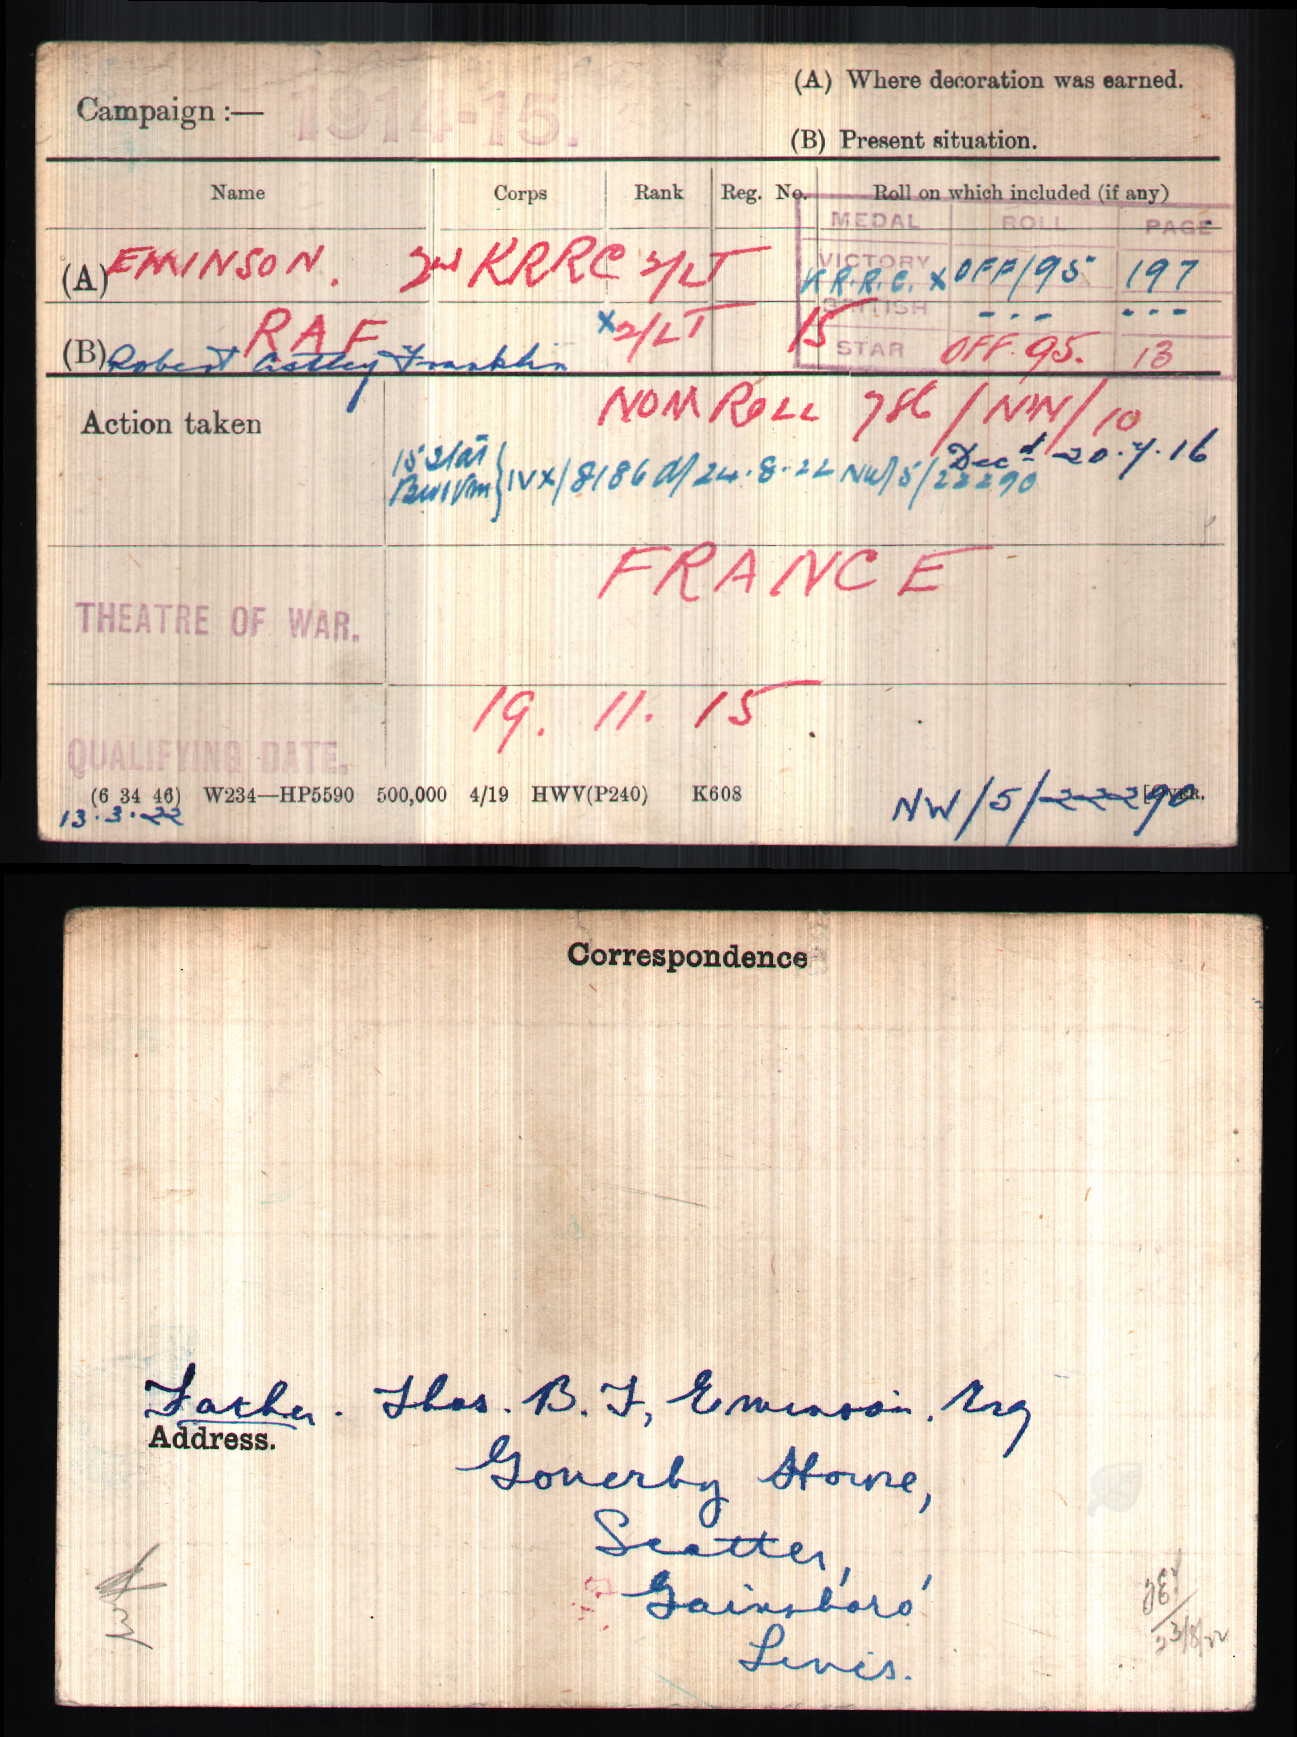 (A) Where decoration was earned.
Campaign :— 1914-15.
(B) Present situation.
Name Corps Rank Reg. No. Roll on which included (if any)
MEDAL ROLL PAGE
VICTORY
(A) EMINSON. KRRC 2/LT K.R.R.C. x OFF/95 197
BRITISH - - - - - -
RAF x2/LT 15
(B) Robert Astley Franklin STAR OFF. 95. 13
NOM ROLL 786/NW/10
Action taken
Decd 20.7.16
15 Star
BW&VM } IVX/8186 d/24.8.22 NW/5/22290
FRANCE
THEATRE OF WAR.
19. 11. 15
QUALIFYING DATE.
(6 34 46) W234—HP5590 500,000 4/19 HWV(P240) K608 [OVER.
13.3.22 NW/5/22290
Correspondence
Father. Thos. B. F. Eminson. Esq
Address.
Gonerby House,
Scotter,
Gainsboro'
Lincs.
23/8/22